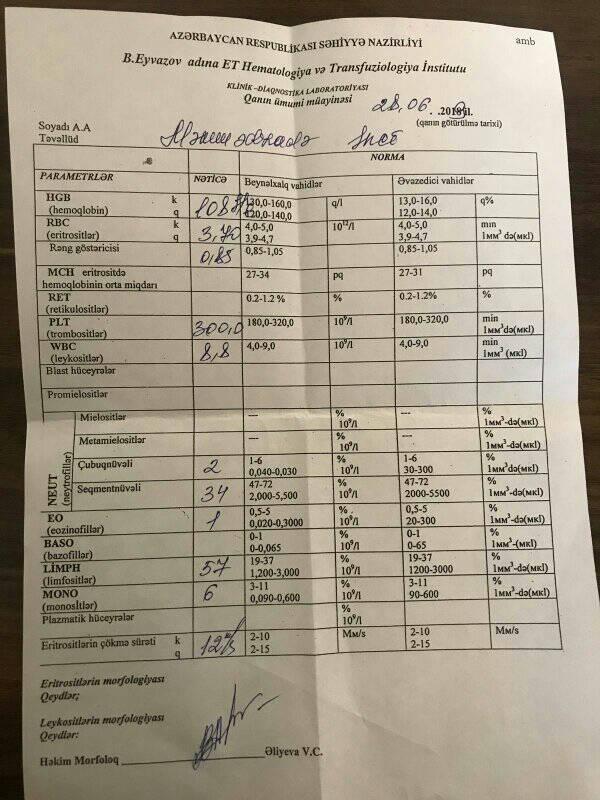 amb
AZƏRBAYCAN RESPUBLİKASI SƏHİYYƏ NAZİRLİYİ
B.Eyvazov adına ET Hematologiya və Transfuziologiya İnstitutu
KLİNİK –DİAQNOSTİKA LABORATORİYASI
Qanın ümumi müayinəsi
28.06 .2018 il.
(qanın götürülmə tarixi)
Soyadı A.A
Təvəllüd
NORMA
PARAMETRLƏR NƏTİCƏ Beynəlxalq vahidlər Əvəzedici vahidlər
HGB k 108 130,0-160,0 q/l 13,0-16,0 q%
(hemoqlobin) q 120,0-140,0 12,0-14,0
RBC k 3,70 4,0-5,0 10¹²/l 4,0-5,0 min
(eritrositlər) q 3,9-4,7 3,9-4,7 1мм³ də(мкl)
Rəng göstəricisi 0,85 0,85-1,05 0,85-1,05
MCH eritrositdə 27-34 pq 27-31 pq
hemoqlobinin orta miqdarı
RET 0.2-1.2 % % 0.2-1.2% %
(retikulositlər)
PLT 300,0 180,0-320,0 10⁹/l 180,0-320,0 min
(trombositlər) 1мм³də(мкl)
WBC 8,8 4,0-9,0 10⁹/l 4,0-9,0 min
(leykositlər) 1мм³ (мкl)
Blast hüceyrələr
Promielositlər
NEUT
(neytrofillər)
Mielositlər --- % --- %
10⁹/l 1мм³-də(мкl)
Metamielositlər --- % --- %
10⁹/l 1мм³-də(мкl)
Çubuqnüvəli 2 1-6 % 1-6 %
0,040-0,030 10⁹/l 30-300 1мм³də(мкl)
Seqmentnüvəli 34 47-72 % 47-72 %
2,000-5,500 10⁹/l 2000-5500 1мм³-də(мкl)
EO 1 0,5-5 % 0,5-5 %
(eozinofillər) 0,020-0,3000 10⁹/l 20-300 1мм³-də(мкl)
BASO 0-1 % 0-1 %
(bazofillər) 0-0,065 10⁹/l 0-65 1мм³-(мкl)
LİMPH 57 19-37 % 19-37 %
(limfositlər) 1,200-3,000 10⁹/l 1200-3000 1мм³-də(мкl)
MONO 6 3-11 % 3-11 %
(monositlər) 0,090-0,600 10⁹/l 90-600 1мм³-də(мкl)
Plazmatik hüceyrələr %
10⁹/l
Eritrositlərin çökmə sürəti k 12 2-10 Мм/s 2-10 Мм/s
q 2-15 2-15
Eritrositlərin morfologiyası
Qeydlər;
Leykositlərin morfologiyası
Qeydlər:
Həkim Morfoloq Əliyeva V.C.